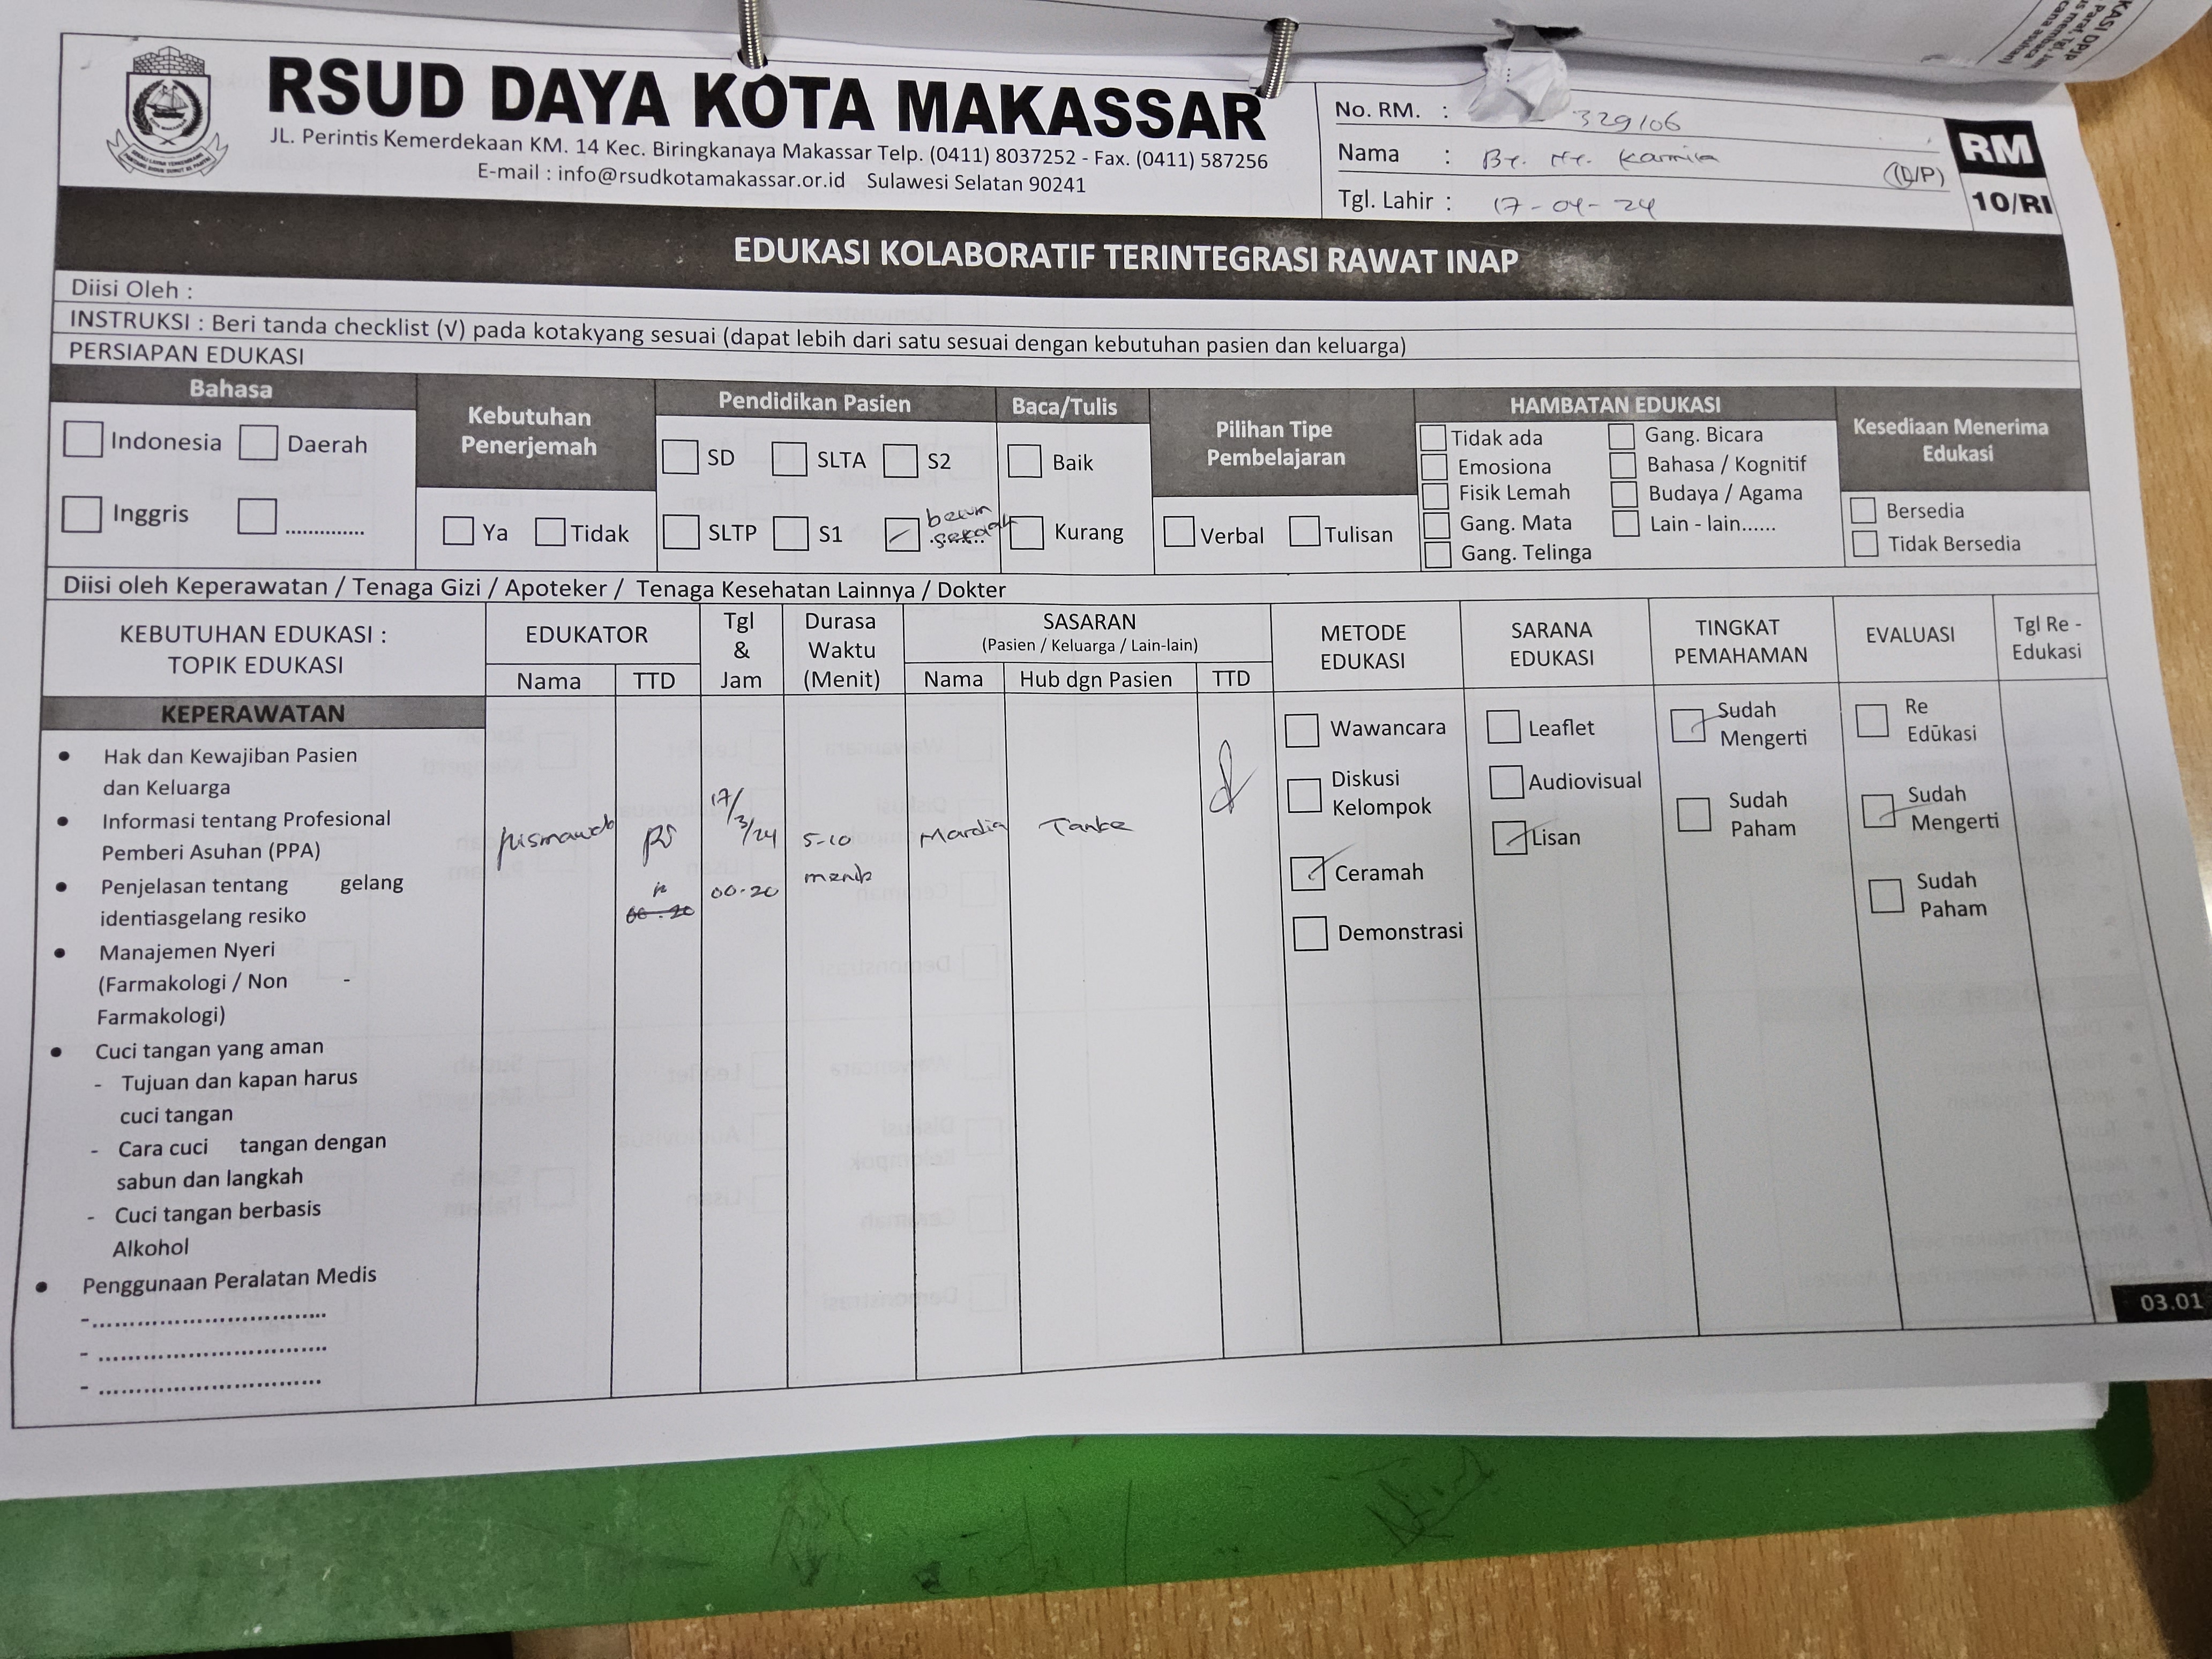 RSUD DAYA KOTA MAKASSAR
JL. Perintis Kemerdekaan KM. 14 Kec. Biringkanaya Makassar Telp. (0411) 8037252 - Fax. (0411) 587256
E-mail : info@rsudkotamakassar.or.id Sulawesi Selatan 90241
No. RM. : 329106
Nama : By. Ny. Karmila
(L/P)
Tgl. Lahir : 17-04-24
RM
10/RI
EDUKASI KOLABORATIF TERINTEGRASI RAWAT INAP
Diisi Oleh :
INSTRUKSI : Beri tanda checklist (√) pada kotakyang sesuai (dapat lebih dari satu sesuai dengan kebutuhan pasien dan keluarga)
PERSIAPAN EDUKASI
Bahasa
Indonesia Daerah
Inggris ..............
Kebutuhan
Penerjemah
Ya Tidak
Pendidikan Pasien
SD SLTA S2
SLTP S1 belum sekolah
Baca/Tulis
Baik
Kurang
Pilihan Tipe
Pembelajaran
Verbal Tulisan
HAMBATAN EDUKASI
Tidak ada Gang. Bicara
Emosiona Bahasa / Kognitif
Fisik Lemah Budaya / Agama
Gang. Mata Lain - lain......
Gang. Telinga
Kesediaan Menerima
Edukasi
Bersedia
Tidak Bersedia
Diisi oleh Keperawatan / Tenaga Gizi / Apoteker / Tenaga Kesehatan Lainnya / Dokter
KEBUTUHAN EDUKASI :
TOPIK EDUKASI
EDUKATOR
Nama TTD
Tgl
&
Jam
Durasa
Waktu
(Menit)
SASARAN
(Pasien / Keluarga / Lain-lain)
Nama Hub dgn Pasien TTD
METODE
EDUKASI
SARANA
EDUKASI
TINGKAT
PEMAHAMAN
EVALUASI
Tgl Re -
Edukasi
KEPERAWATAN
• Hak dan Kewajiban Pasien
dan Keluarga
• Informasi tentang Profesional
Pemberi Asuhan (PPA)
• Penjelasan tentang gelang
identiasgelang resiko
• Manajemen Nyeri
(Farmakologi / Non -
Farmakologi)
• Cuci tangan yang aman
- Tujuan dan kapan harus
cuci tangan
- Cara cuci tangan dengan
sabun dan langkah
- Cuci tangan berbasis
Alkohol
• Penggunaan Peralatan Medis
- ..................................
- ..................................
- ..................................
17/3/24
00.20
00.20
5-10
menit
Mardia
Tante
Wawancara
Diskusi
Kelompok
Ceramah
Demonstrasi
Leaflet
Audiovisual
Lisan
Sudah
Mengerti
Sudah
Paham
Re
Edukasi
Sudah
Mengerti
Sudah
Paham
03.01